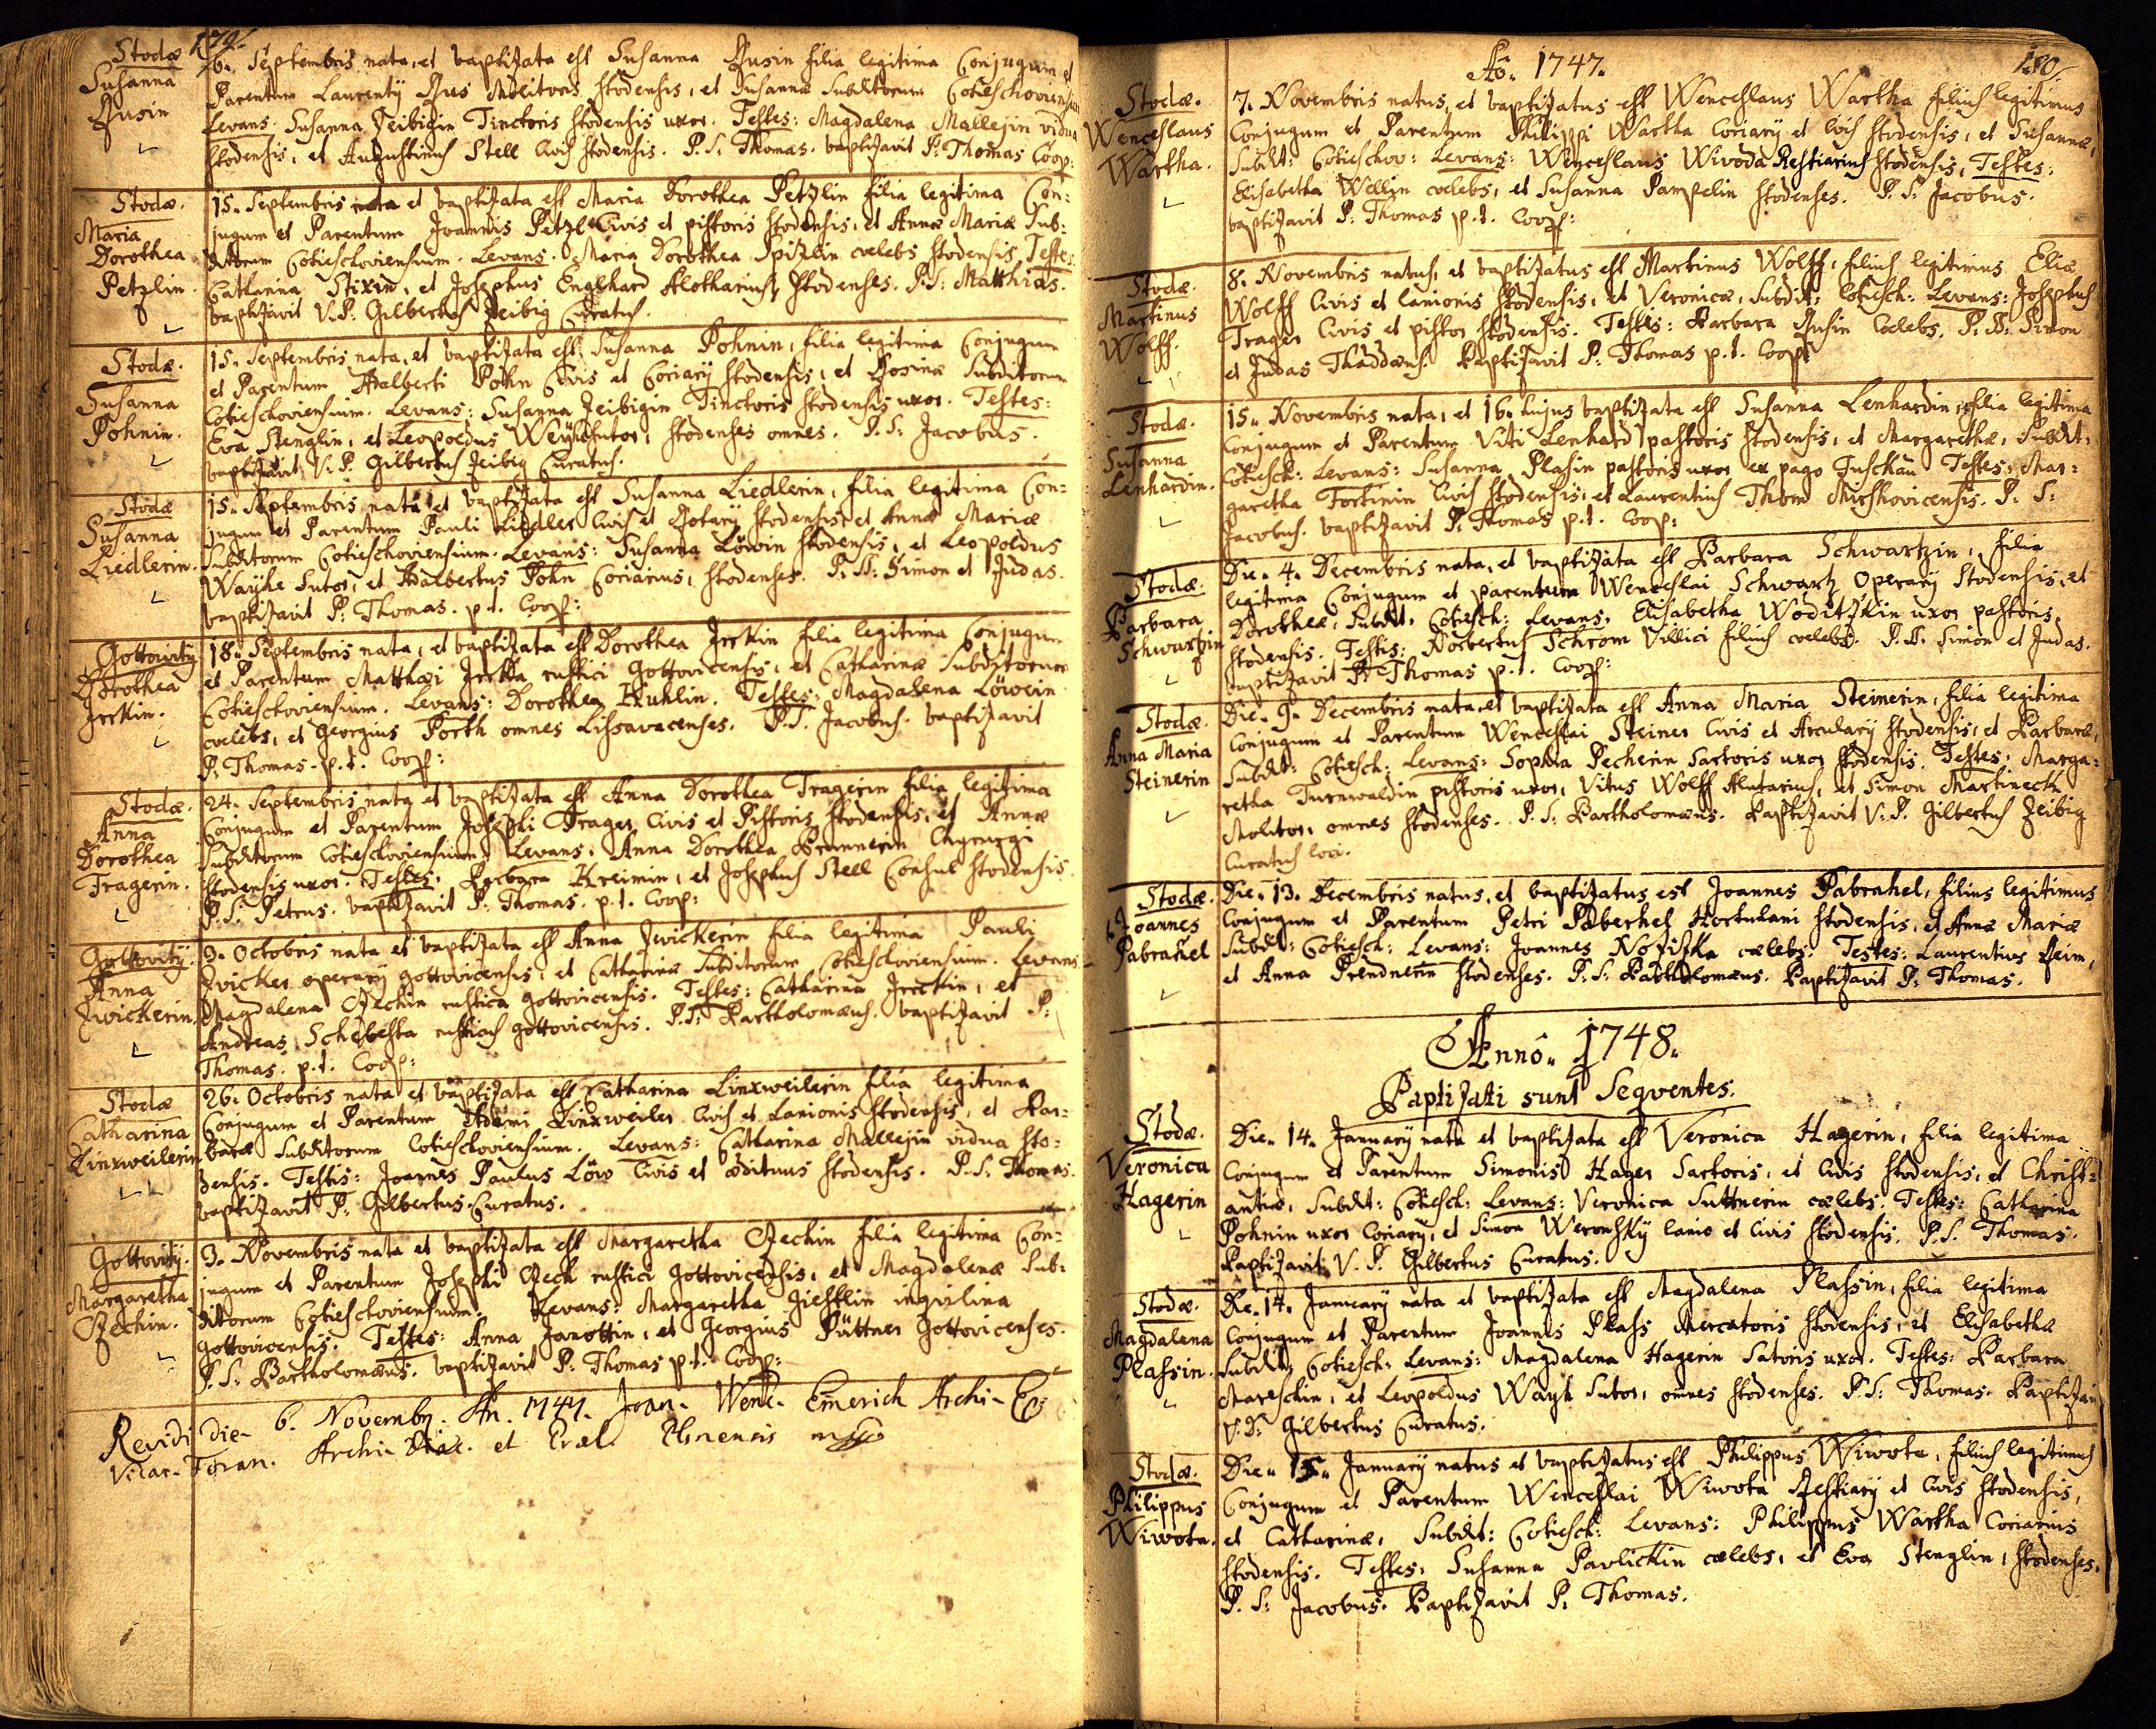 179.
Stodæ
Susanna
6. Septembris nata, et baptizata est Susanna filia legitima Conjugum et
Parentum Laurentÿ Molitoris Stodensis, et Susannæ Subditorum Cotieschoviensium
Levans: Susanna Zeibigin Tinctoris Stodensis uxor. Testes: Magdalena Mallejin vidua
Stodensis, et Augustinus Stell Civis Stodensis. P. S. Thomas. baptizavit P. Thomas Coop:
Stodæ.
Maria
Dorothea
Petzlin.
15. Septembris nata et baptizata est Maria Dorothea Petzlin filia legitima Con:
jugum et Parentum Joannis Petzl Civis et pistoris Stodensis, et Annæ Mariæ Sub:
ditorum Cotieschoviensium. Levans: Maria Dorothea Spitzlin cœlebs Stodensis, Testes
Catharina Stixin, et Josephus Englhard Stodenses. P. S. Matthias.
baptizavit V. P. Gilbertus Zeibig Curatus.
Stodæ.
Susanna
Pohnin.
15. Septembris nata, et baptizata est Susanna Pohnin, filia legitima Conjugum
et Parentum Adalberti Pohn Civis et Coriarÿ Stodensis, et Rosinæ Subditorum
Cotieschoviensium. Levans: Susanna Zeibigin Tinctoris Stodensis uxor. Testes:
Eva Stenglin, et Leopoldus Sutor, Stodenses omnes. P. S. Jacobus.
baptizavit V. P. Gilbertus Zeibig Curatus.
Stodæ
Susanna
Liedlerin.
15. Septembris nata et baptizata est Susanna Liedlerin, filia legitima Con:
jugum et Parentum Pauli Liedler Civis et Stodensis, et Annæ Mariæ
Subditorum Cotieschoviensium. Levans: Susanna Löwin Stodensis, et Leopoldus
Sutor, et Adalbertus Pohn Coriarius, Stodenses. P. SS. Simon et Judas.
baptizavit P. Thomas. p. t. Coop:
Gottovitÿ
Dorothea
Jerkin.
18. Septembris nata, et baptizata est Dorothea Jerkin filia legitima Conjugum
et Parentum Matthæi rustici Gottovicensis, et Catharinæ Subditorum
Cotieschoviensium. Levans: Dorothea Kuhlin. Testes: Magdalena Löwein
cœlebs, et Georgius Porth omnes Lissavacenses. P. S. Jacobus. baptizavit
P. Thomas. p. t. Coop:
Stodæ.
Anna
Dorothea
Tragerin.
24. Septembris nata et baptizata est Anna Dorothea Tragerin filia legitima
Conjugum et Parentum Josephi Trager Civis et Pistoris Stodensis, et Annæ
Subditorum Cotieschoviensium. Levans: Anna Dorothea Brunnerin Chyrurgi
Stodensis uxor. Testes: Barbara Kreimin, et Josephus Stell Consul Stodensis.
P. S. Petrus. baptizavit P. Thomas. p. t. Coop:
Gottovitÿ.
Anna
Zwickerin.
9. Octobris nata et baptizata est Anna Zwickerin filia legitima Pauli
Zwicker operarÿ gottovicensis, et Catharinæ Subditorum Cotieschoviensium. Levans
Magdalena Czechin rustica gottovicensis. Testes: Catharina Jerckin, et
Andreas Schebesta rusticus gottovicensis. P. S. Bartholomæus. baptizavit P:
Thomas. p. t. Coop:
Stodæ
Catharina
Linxweilerin
26. Octobris nata et baptizata est Catharina Linxweilerin filia legitima
Conjugum et Parentum Adami Linxweiler Civis et Lanionis Stodensis, et Bar:
baræ Subditorum Cotieschoviensium. Levans: Catharina Mallejin vidua Sto:
densis. Testis: Joannes Paulus Löw Civis et ædituus Stodensis. P. S. Thomas.
baptizavit P. Gilbertus Curatus.
Gottovitÿ.
Margaretha
Czechin.
3. Novembris nata et baptizata est Margaretha Czechin filia legitima Con:
jugum et Parentum Josephi Czech rustici gottovicensis, et Magdalenæ Sub:
ditorum Cotieschoviensium. Levans: Margaretha inqvilina
gottovicensis. Testes: Anna Janottin, et Georgius Püttner Gottovicenses.
P. S. Bartholomæus. baptizavit P. Thomas p. t. Coop:
Revidi die 6. Novembr. An. 1747. Joan. Wenc. Emerich Archi-
Vicar. Foran. Archi et
180.
Aõ. 1747.
Stodæ.
Wenceslaus
Wartha.
7. Novembris natus, et baptizatus est Wenceslaus Wartha filius legitimus
Conjugum et Parentum Philippi Wartha Coriarÿ et Civis Stodensis, et Susannæ,
Subdit: Cotieschov: Levans: Wenceslaus Wivoda Restiarius Stodensis, Testes:
Elisabetha Wellin cœlebs, et Susanna Pampelin Stodenses. P. S. Jacobus.
baptizavit P. Thomas p. t. Coop:
Stodæ.
Martinus
Wolff.
8. Novembris natus, et baptizatus est Martinus Wolff, filius legitimus Eliæ
Wolff Civis et lanionis Stodensis, et Veronicæ, Subdit: Cotiesch: Levans: Josephus
Trager Civis et pistor Stodensis. Testis: Barbara cœlebs. P. SS. Simon
et Judas Thaddæus. Baptizavit P. Thomas p. t. Coop:
Stodæ.
Susanna
Lenhardin.
15. Novembris nata, et 16. hujus baptizata est Susanna Lenhardin, filia legitima
Conjugum et Parentum Viti Lenhard pastoris Stodensis, et Margarethæ, Subdit:
Cotiesch: Levans: Susanna Plasin pastoris uxor ex pago Tuschkau Testes: Mar:
garetha Fortinin Civis Stodensis, et Laurentius Thom P. S:
Jacobus. baptizavit P. Thomas p. t. Coop:
Stodæ.
Barbara
Schwartzin
Die. 4. Decembris nata, et baptizata est Barbara Schwartzin, filia
legitima Conjugum et parentum Wenceslai Schwartz Operarÿ Stodensis, et
Dorotheæ, Subdit. Cotiesch: Levans: Elisabetha uxor pastoris
Stodensis. Testis: Norbertus Schrom Villici filius cœlebs. P. SS. Simon et Judas.
baptizavit P. Thomas p. t. Coop:
Stodæ.
Anna Maria
Steinerin
Die. 9. Decembris nata et baptizata est Anna Maria Steinerin, filia legitima
Conjugum et Parentum Wenceslai Steiner Civis et Arcularÿ Stodensis, et Barbaræ,
Subdit: Cotiesch: Levans: Sophia Pecherin Sartoris uxor Stodensis. Testes: Marga:
retha Turnwaldin pistoris uxor, Vitus Wolff Alutarius, et Simon Martineck
Molitor, omnes Stodenses. P. S. Bartholomæus. Baptizavit V. P. Gilbertus Zeibig
Curatus loci.
Stodæ.
Joannes
Pabrahel
Die. 13. Decembris natus, et baptizatus est Joannes Pabrahel, filius legitimus
Conjugum et Parentum Petri Hortulani Stodensis, et Annæ Mariæ
Subdit: Cotiesch: Levans: Joannes cælebs. Testes: Laurentius
et Anna Prendnerin Stodenses. P. S. Bartholomæus. Baptizavit P. Thomas.
Annô. 1748.
Baptizati sunt Seqventes.
Stodæ.
Veronica
Hagerin
Die. 14. Januarÿ nata et baptizata est Veronica Hagerin, filia legitima
Conjugum et Parentum Simonis Hager Sartoris, et Civis Stodensis, et Christi:
anæ, Subdit: Cotiesch: Levans: Veronica Suttnerin cælebs. Testes: Catharina
Pohnin uxor Coriarÿ, et Simon Weronsky lanio et Civis Stodensis. P. S. Thomas.
Baptizavit V. P. Gilbertus Curatus.
Stodæ.
Magdalena
Plassin.
Die. 14. Januarÿ nata et baptizata est Magdalena Plassin, filia legitima
Conjugum et Parentum Joannis Plass Mercatoris Stodensis, et Elisabethæ
Subdit: Cotiesch: Levans: Magdalena Hagerin Satoris uxor. Testes: Barbara
Mareschin, et Leopoldus Wayh Sutor, omnes Stodenses. P. S: Thomas. Baptizav
V. P. Gilbertus Curatus.
Stodæ.
Philippus
Wiwota.
Die. 15. Januarÿ natus et baptizatus est Philippus Wiwota, filius legitimus
Conjugum et Parentum Wenceslai Wiwota Restiarÿ et Civis Stodensis,
et Catharinæ, Subdit: Cotiesch: Levans: Philippus Wartha Coriarius
Stodensis. Testes: Susanna Pavlickin cælebs, et Eva Stenglin, Stodenses.
P. S: Jacobus. Baptizavit P. Thomas.